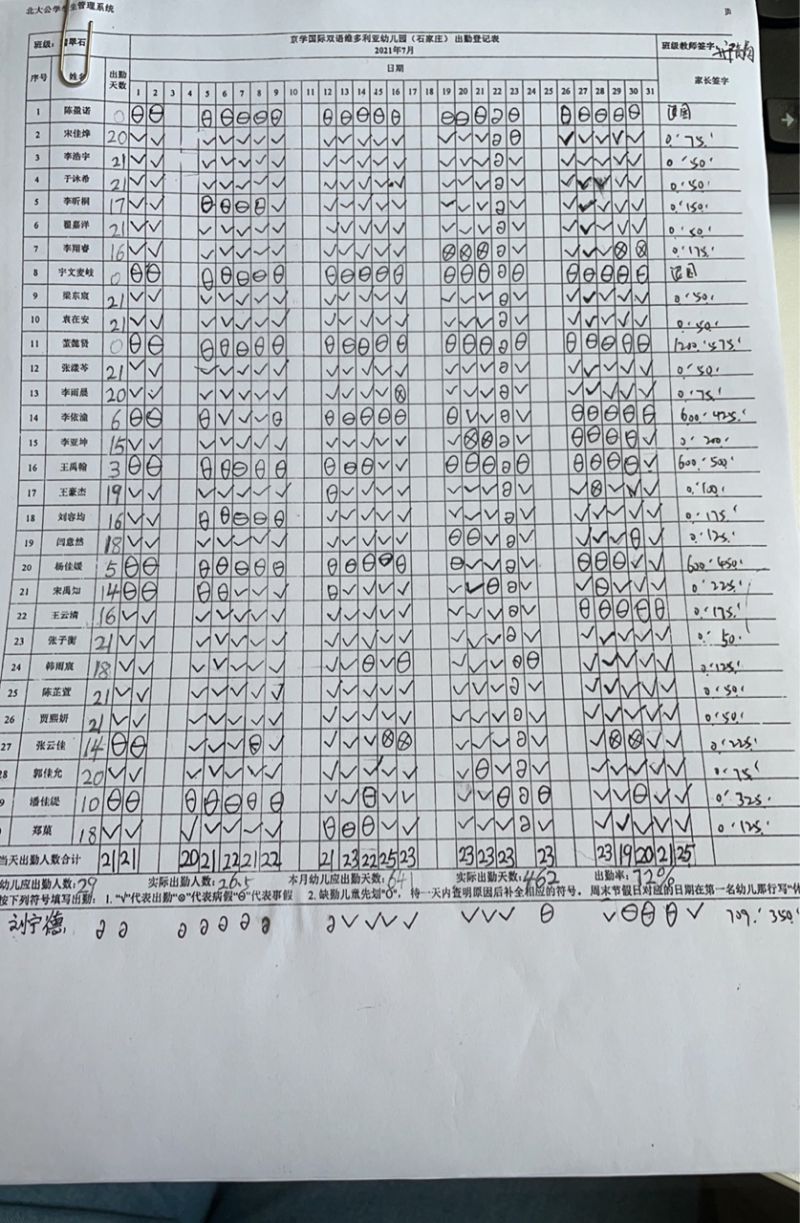 北大公学学生管理系统
京学国际双语维多利亚幼儿园（石家庄）出勤登记表
2021年7月
班级： 翡翠石 班级教师签字：
序号 姓名 出勤天数 日期 家长签字
1 2 3 4 5 6 7 8 9 10 11 12 13 14 15 16 17 18 19 20 21 22 23 24 25 26 27 28 29 30 31
1 陈盈诺 0 ⊖ ⊖ ⊖ ⊖ ⊖ ⊖ ⊖ ⊖ ⊖ ⊖ ⊖ ⊖ ⊖ ⊖ ⊖ ∂ ⊖ ⊖ ⊖ ⊖ ⊖ ⊖ 退园
2 宋佳烨 20 √ √ √ √ √ √ √ √ √ √ √ √ √ √ √ ∂ ⊖ √ √ √ √ √ 0.' 75.'
3 李浩宇 21 √ √ √ √ √ √ √ √ √ √ √ √ √ √ √ ∂ √ √ √ √ √ √ 0.' 50.'
4 于沐希 21 √ √ √ √ √ √ √ √ √ √ √ √ √ √ √ ∂ √ √ √ √ √ √ 0.' 50.'
5 李昕桐 17 √ √ ⊖ ⊖ ⊖ ⊖ √ √ √ √ √ √ √ √ √ ∂ √ √ √ √ √ √ 0.' 150.'
6 翟嘉洋 21 √ √ √ √ √ √ √ √ √ √ √ √ √ √ √ ∂ √ √ √ √ √ √ 0.' 50.'
7 李翔睿 16 √ √ √ √ √ √ √ √ √ √ √ √ ⊗ ⊗ ⊗ ∂ √ √ √ √ ⊗ ⊗ 0.' 175.'
8 宁文麦岐 0 ⊖ ⊖ ⊖ ⊖ ⊖ ⊖ ⊖ ⊖ ⊖ ⊖ ⊖ ⊖ ⊖ ⊖ ⊖ ⊖ ⊖ ⊖ ⊖ ⊖ ⊖ ⊖ 退园
9 梁东宸 21 √ √ √ √ √ √ √ √ √ √ √ √ √ √ √ ∂ √ √ √ √ √ √ 0.' 50.'
10 袁在安 21 √ √ √ √ √ √ √ √ √ √ √ √ √ √ √ ∂ √ √ √ √ √ √ 0.' 50.'
11 董懿贤 0 ⊖ ⊖ ⊖ ⊖ ⊖ ⊖ ⊖ ⊖ ⊖ ⊖ ⊖ ⊖ ⊖ ⊖ ⊖ ∂ ⊖ ⊖ ⊖ ⊖ ⊖ ⊖ 1200.' 575.'
12 张漾芩 21 √ √ √ √ √ √ √ √ √ √ √ √ √ √ √ ∂ √ √ √ √ √ √ 0.' 50.'
13 李雨晨 20 √ √ √ √ √ √ √ √ √ √ √ ⊗ √ √ √ ∂ √ √ √ √ √ √ 0.' 75.'
14 李依渝 6 ⊖ ⊖ ⊖ √ √ √ ⊖ ⊖ ⊖ ⊖ ⊖ ⊖ ⊖ √ √ ∂ √ ⊖ ⊖ ⊖ ⊖ ⊖ 600.' 425.'
15 李亚坤 15 √ √ √ √ √ √ √ √ √ √ √ √ √ ⊗ ⊗ ∂ √ ⊖ ⊖ ⊖ ⊖ √ 0.' 200.'
16 王禹翰 3 ⊖ ⊖ ⊖ ⊖ ⊖ ⊖ ⊖ ⊖ ⊖ ⊖ √ √ ⊖ ⊖ ⊖ ∂ ⊖ ⊖ ⊖ ⊖ ⊖ √ 600.' 500.'
17 王豪杰 19 √ √ √ √ √ √ √ ⊖ √ √ √ √ √ √ √ ∂ √ √ ⊗ √ √ √ 0.' 100.'
18 刘容均 16 √ √ ⊖ ⊖ ⊖ ⊖ ⊖ √ √ √ √ √ √ √ √ ∂ √ √ √ √ √ √ 0.' 175.'
19 闫意然 18 √ √ √ √ √ √ √ √ √ √ √ √ ⊖ ⊖ √ ∂ √ √ √ √ ⊖ √ 0.' 125.'
20 杨佳媛 5 ⊖ ⊖ ⊖ ⊖ ⊖ ⊖ ⊖ ⊖ ⊖ ⊖ ⊖ ⊖ ⊖ √ √ ∂ √ ⊖ ⊖ ⊖ √ √ 600.' 450.'
21 宋禹知 14 ⊖ ⊖ ⊖ ⊖ √ √ √ ⊖ √ √ √ √ √ √ ⊖ ∂ √ √ ⊖ √ √ √ 0.' 225.'
22 王云清 16 √ √ √ √ √ √ √ √ √ √ √ √ √ √ √ ∂ √ ⊖ ⊖ ⊖ ⊖ ⊖ 0.' 175.'
23 张子衡 21 √ √ √ √ √ √ √ √ √ √ √ √ √ √ √ ∂ √ √ √ √ √ √ 0.' 50.'
24 韩雨宸 18 √ √ √ √ √ √ √ √ √ ⊖ √ ⊖ √ √ √ ∂ ⊖ √ √ √ √ √ 0.' 125.'
25 陈芷萱 21 √ √ √ √ √ √ √ √ √ √ √ √ √ √ √ ∂ √ √ √ √ √ √ 0.' 50.'
26 贾熙妍 21 √ √ √ √ √ √ √ √ √ √ √ √ √ √ √ ∂ √ √ √ √ √ √ 0.' 50.'
27 张云佳 14 ⊖ ⊖ √ √ √ ⊖ √ √ √ √ ⊗ ⊗ √ √ √ ∂ √ √ ⊗ ⊗ √ √ 0.' 225.'
28 郭佳允 20 √ √ √ √ √ √ √ √ √ √ √ √ √ ⊖ √ ∂ √ √ √ √ √ √ 0.' 75.'
9 潘佳缇 10 ⊖ ⊖ ⊖ ⊖ ⊖ ⊖ ⊖ √ √ ⊖ √ √ √ √ ⊖ ∂ ⊖ √ √ ⊖ √ √ 0.' 325.'
郑菓 18 √ √ √ √ √ √ √ ⊖ ⊖ ⊖ √ √ √ √ √ ∂ √ √ √ √ √ √ 0.' 125.'
当天出勤人数合计 21 21 20 21 22 21 22 21 23 22 25 23 23 23 23 23 23 19 20 21 25
幼儿应出勤人数：29 实际出勤人数：26.5 本月幼儿应出勤天数：641 实际出勤天数：462 出勤率：72%
按下列符号填写出勤： 1. "√"代表出勤"⊗"代表病假"⊖"代表事假 2. 缺勤儿童先划"O"， 待一天内查明原因后补全相应的符号， 周末节假日对应的日期在第一名幼儿那行写"休
刘宁德 ∂ ∂ ∂ ∂ ∂ ∂ ∂ ∂ √ √ √ √ √ √ √ ⊖ √ ⊖ ⊖ ⊖ √ 709.' 350.'